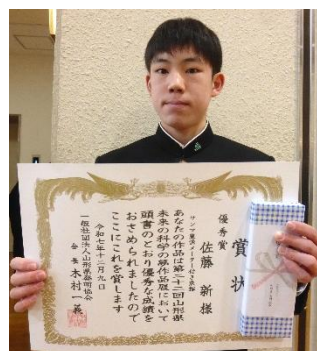 賞状
優秀賞
佐藤 新様
あなたの作品は第二十二回山形県
未来の科学の夢作品展において
頭書のとおり優秀な成績を
おさめられましたので
ここにこれを賞します
令和七年十二月九日
一般社団法人山形県発明協会
会長 木村一義